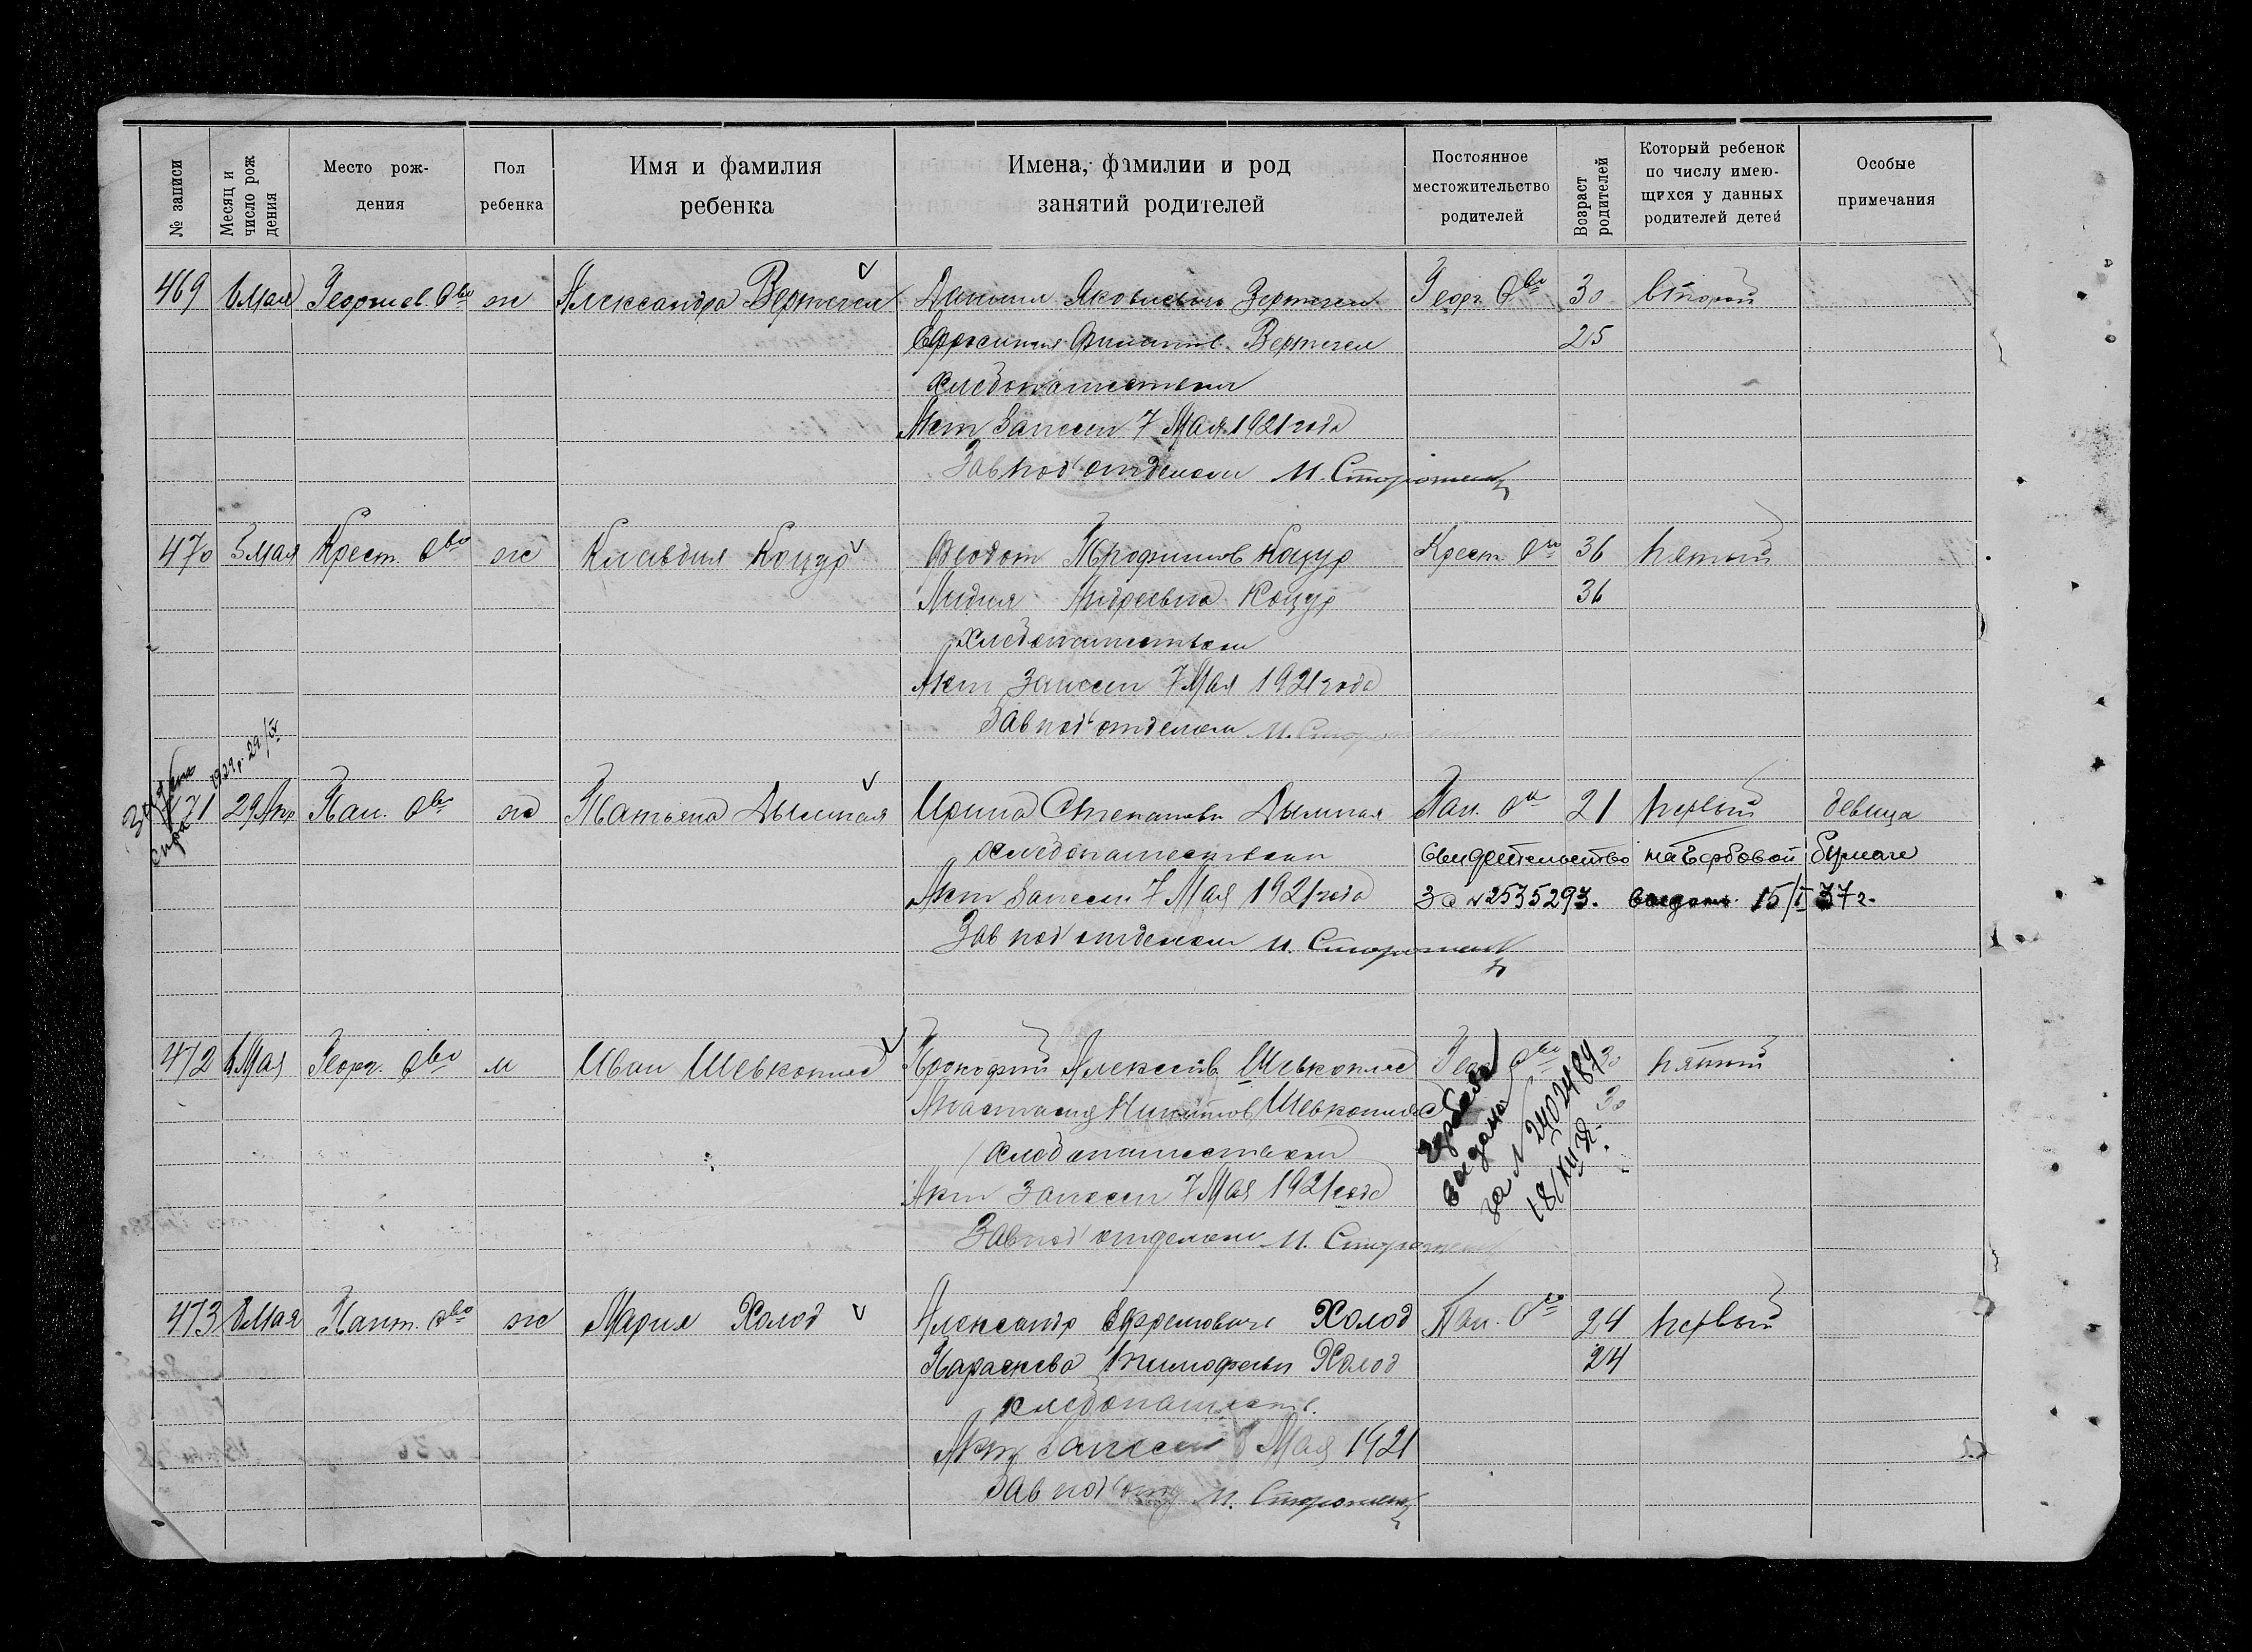 № записи
Месяц и число рож дения
Место рож-
дения
Пол
ребенка
Имя и фамилия
ребенка
Имена, фамилии и род
занятий родителей
Постоянное
местожительство
родителей
Возраст родителей
Который ребенок
по числу имею-
щихся у данных
родителей детей
Особые
примечания
469 6 мая Георгиев. о-во ж Александра Вертегел Даниил Яковлевич Вертегел Георг. о-во 30 второй
Ефросиния Вертегел 25
хлебопашеством
Акт записи 7 Мая 1921 года
Зав под'отделом И. Стороженко
470 5 мая Крест. о-во ж Клавдия Коцур Феодот Трофимов Коцур Крест о-во 36 пятый
Лидия Андреевна Коцур 36
хлебопашеством
Акт записи 7 Мая 1921 года
Зав под'отделом И. Стороженко
1929 р. 29/IV
471 29 Апр Пан. о-во ж Татьяна Дымная Ирина Степановн Дымная Пан. о-во 21 первый девица
хлебопашеством Свидетельство на гербовой бумаге
Акт записи 7 Мая 1921 года за №2535293. выдано. 15/I 37 г.
Зав под'отделом И. Стороженко
472 6 Мая Георг. о-во м Иван Шевкопляс Прокофий Алексеев Шевкопляс Геор о-во 30 пятый
Анастасия Никитов Шевкопляс 30
хлебопашеством
Акт записи 7 Мая 1921 года
Зав под'отделом И. Стороженко
выдано
за № 2402484
18/XII 38.
473 8 Мая Пант. о-во ж Мария Холод Александр Ефремович Холод Пан. о-во 24 первый
Параскева Тимофеевн Холод 24
хлебопашеств.
Акт записи 8 Мая 1921
Зав под'отд И. Стороженко